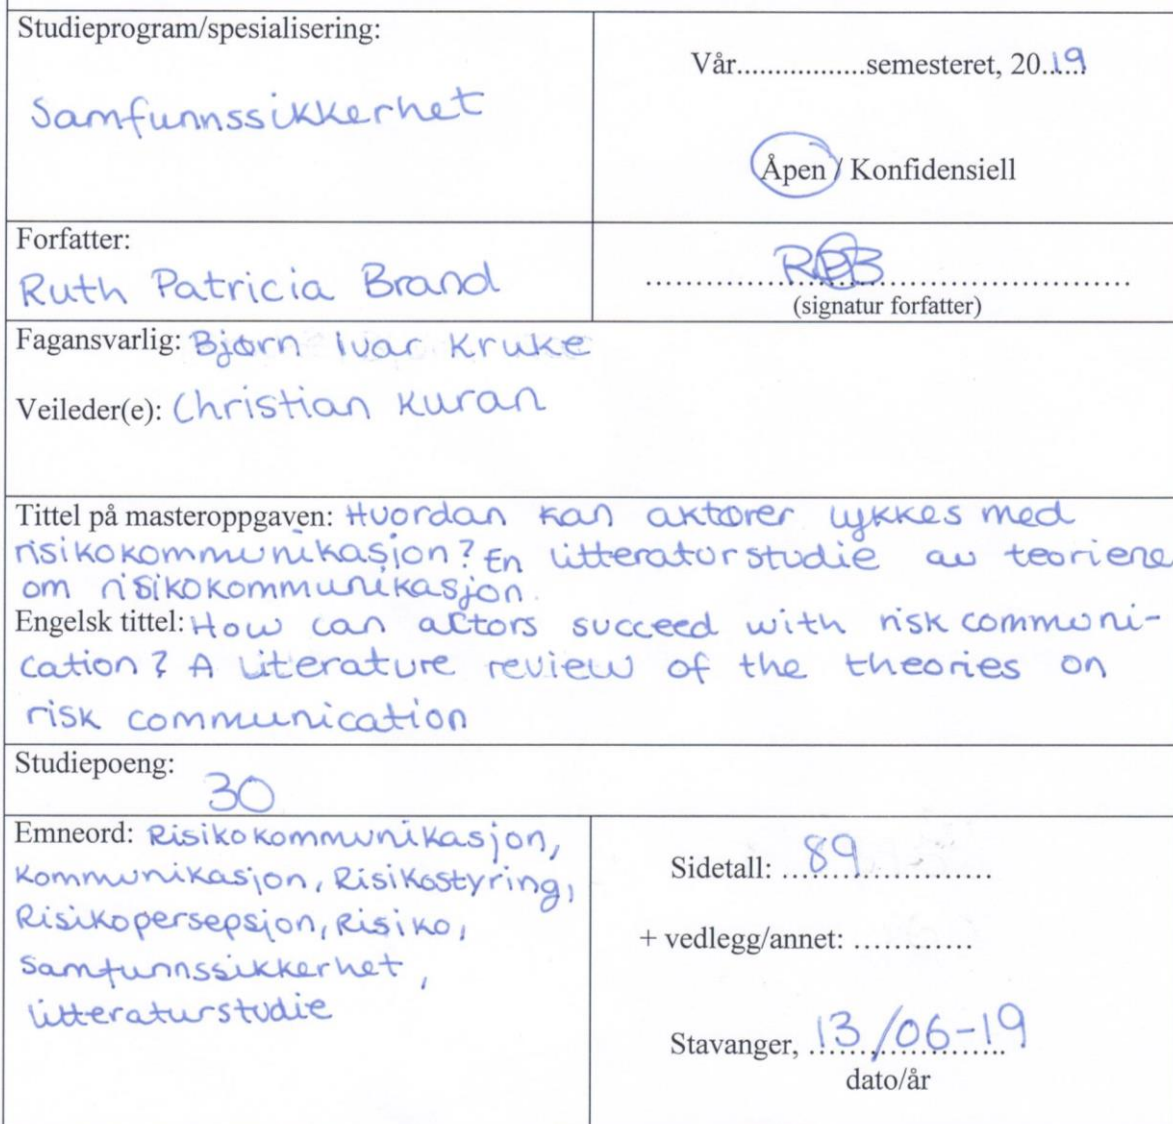 Studieprogram/spesialisering:
Samfunnssikkerhet
Vår.................semesteret, 20..19
Åpen / Konfidensiell
Forfatter:
Ruth Patricia Brand
RPB
(signatur forfatter)
Fagansvarlig: Bjørn Ivar Kruke
Veileder(e): Christian Kuran
Tittel på masteroppgaven: Hvordan kan aktører lykkes med
risikokommunikasjon? En litteraturstudie av teoriene
om risikokommunikasjon.
Engelsk tittel: How can actors succeed with risk communi-
cation? A literature review of the theories on
risk communication
Studiepoeng:
30
Emneord: Risikokommunikasjon,
Kommunikasjon, Risikostyring,
Risikopersepsjon, Risiko,
Samfunnssikkerhet,
litteraturstudie
Sidetall: 89
+ vedlegg/annet: ............
Stavanger, 13/06-19
dato/år